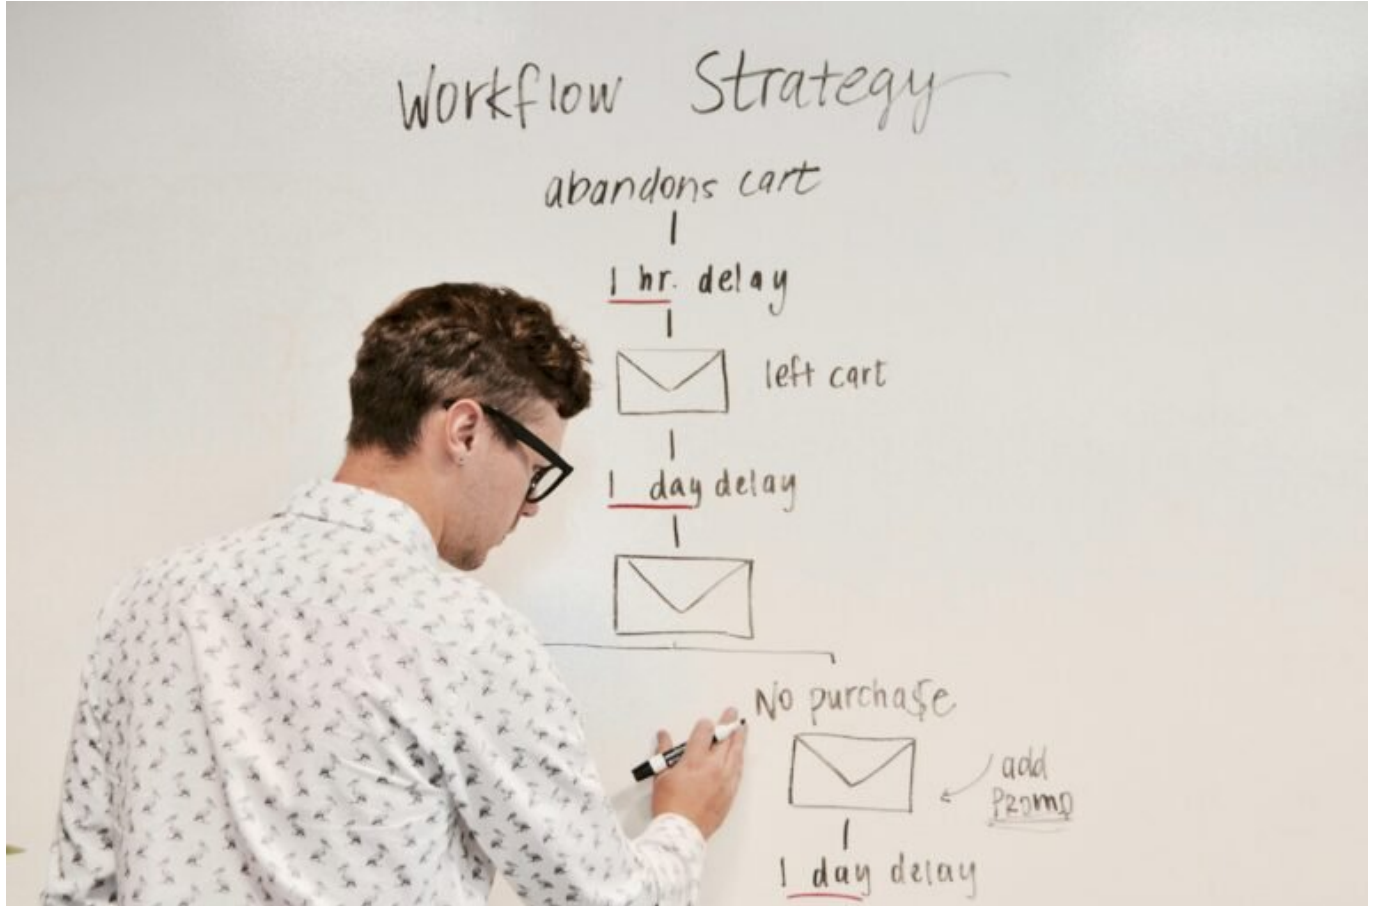 Workflow Strategy
abandons cart
1 hr. delay
left cart
1 day delay
No purchase
add
PROMO
1 day delay